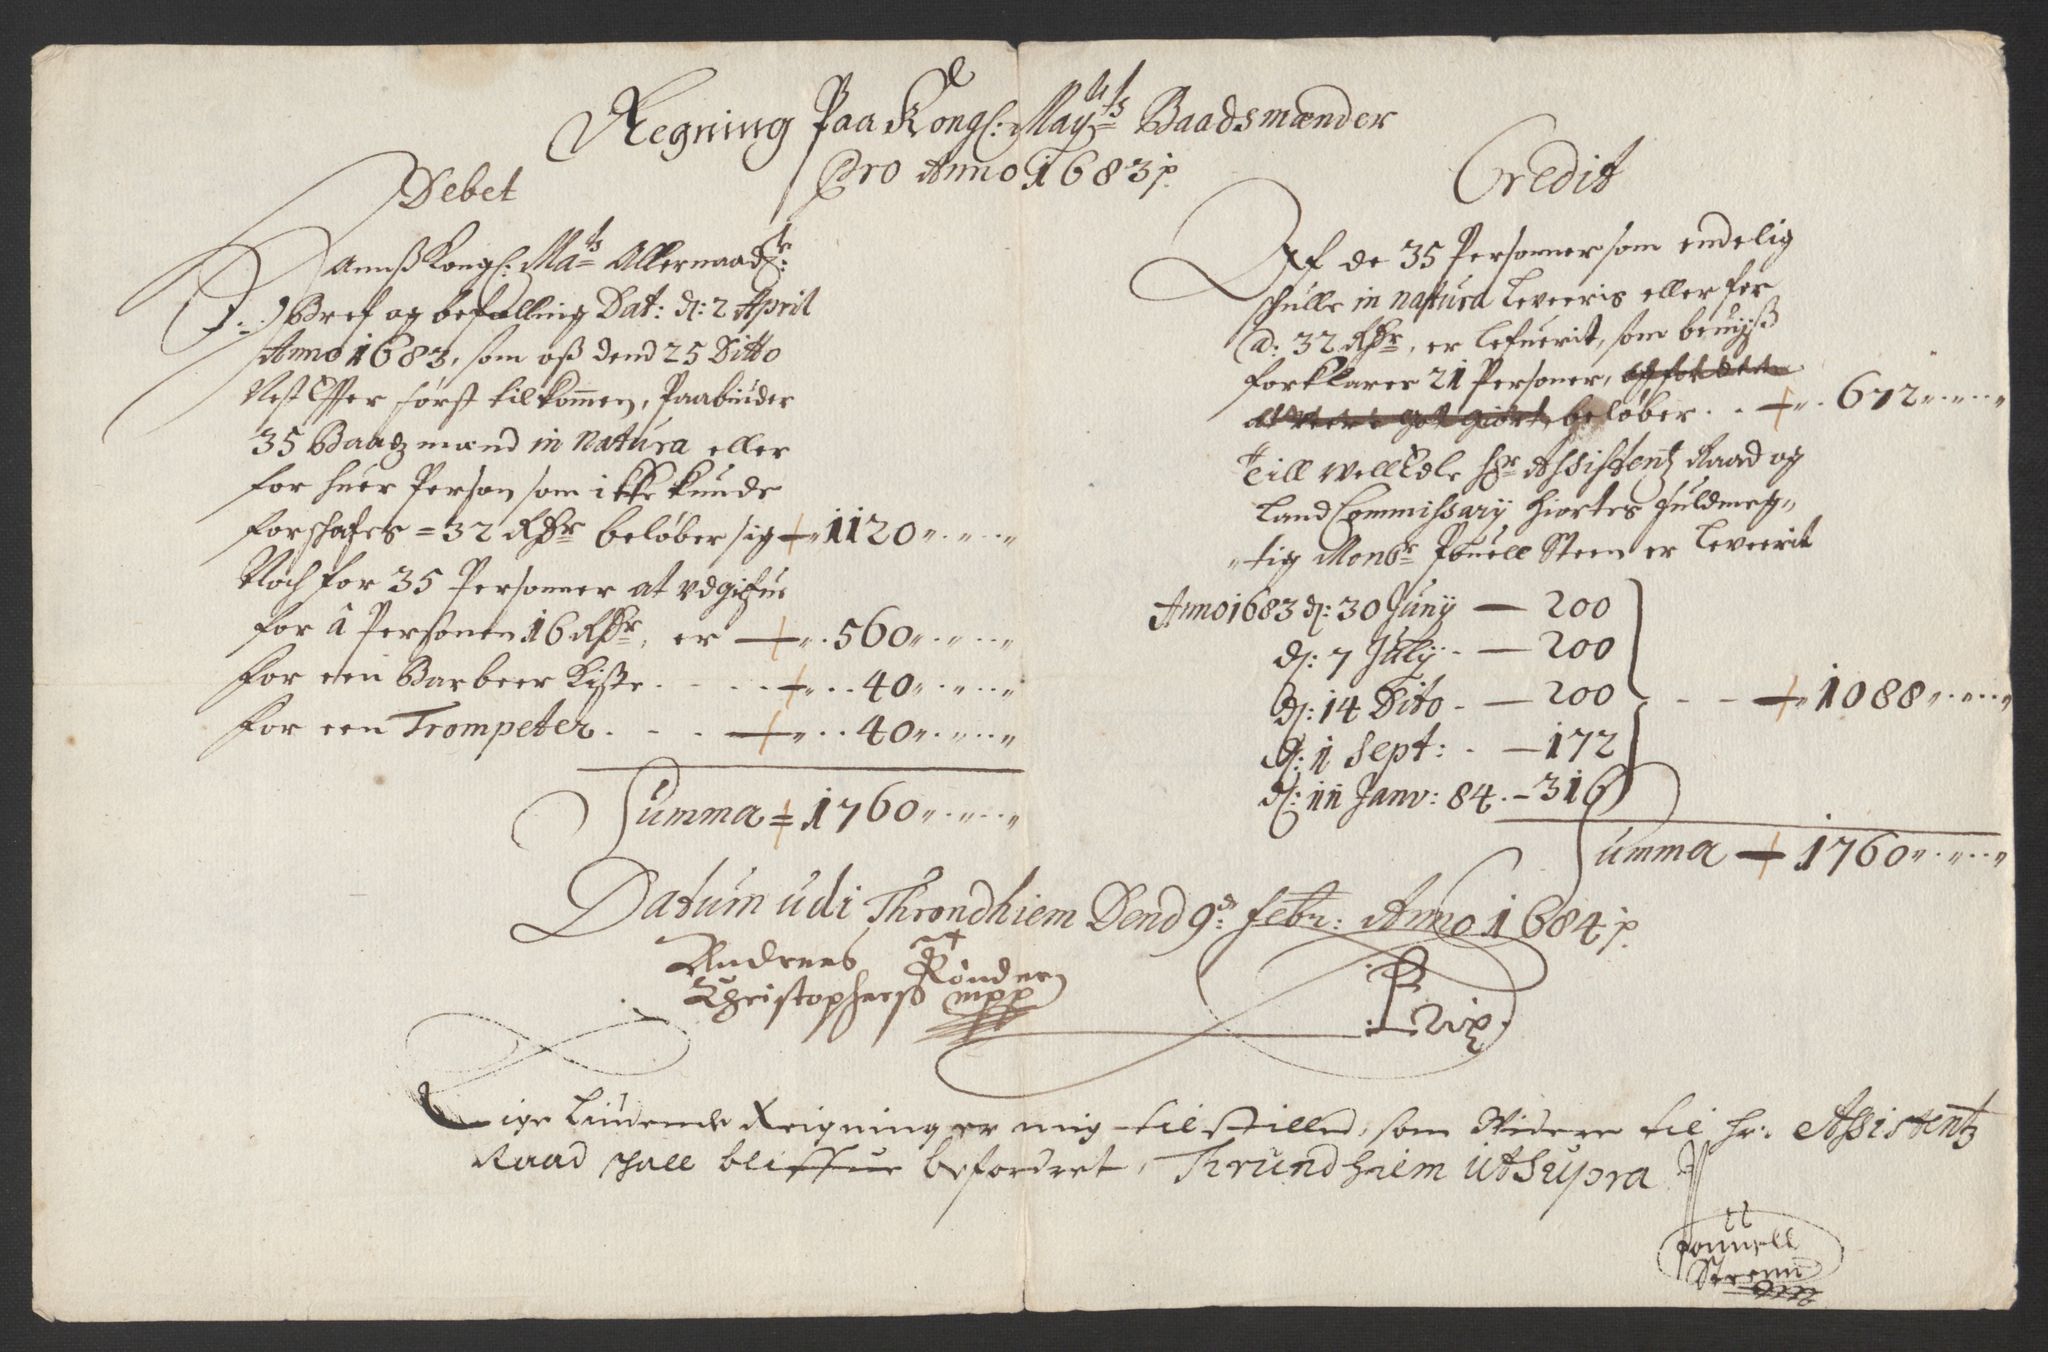 Regning Paa Kongl: Mayts Baadsmænder
Pro Anno 1683 p.
Debet
Hanß Kongl: Mats Allernaadste:
Bref og befalling Dat: d: 2 April
Anno 1683, som oß dend 25 Ditto
Nest Effter først tilkommen, Paabiuder
35 Baadzmænd in Natura eller
for huer Person som ikke kunde
forschafes = 32 Rdr beløber sig 1120
Noch for 35 Personner at udgifue
for â Personen 16 Rdr, er 560
for een Barbeer Kiste 40
for een Trompeter 40
Summa = 1760
Credit
Af de 35 Personner som endelig
schulle in natura Leveeris eller for
a: 32 Rdr, er lefuerit, som beuiß
forklarer 21 Personer,
beløber 672
Till Well Edle Hr Assistentz Raad og
Land Commissary Hiortes fuldmeg-
tig Monsr Pouell Steen er Leveerit
Anno 1683 d: 30 Juny — 200
d: 7 July — 200
d: 14 Dito — 200
d: 1 Sept: — 172
1088
d: 11 Janv: 84 — 316
Summa — 1760
Datum udi Throndhiem Dend 9de: Febr: Anno 1684 p.
Andrees Rønder
Christophers mpp
Lige Liudende Reigning er mig tilstilled, som Videre til Hr. Assistentz
Raad skall bliffue befordret, Trundhiem ut Supra
Pouell
Steenn